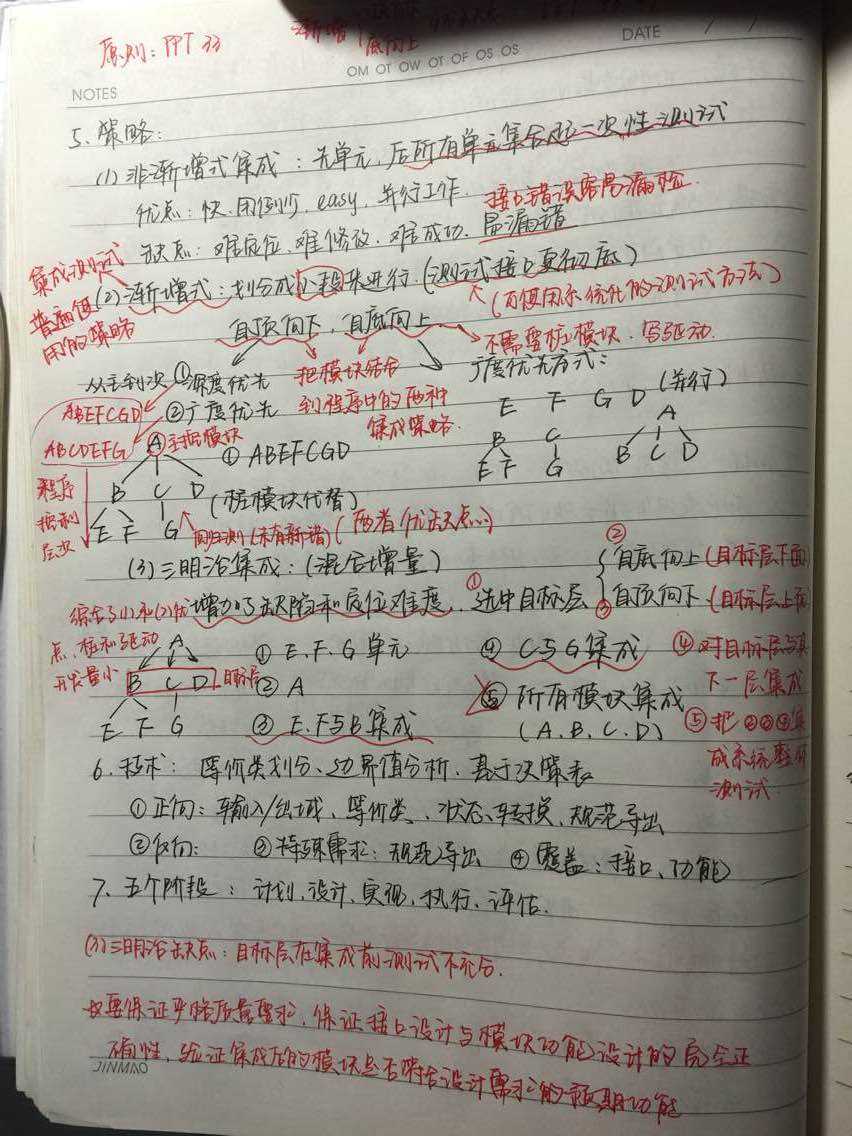 原则：PPT 33
渐增
底向上
DATE
NOTES
OM OT OW OT OF OS OS
5、策略：
(1) 非渐增式集成：先单元，后所有单元集合起一次性测试
优点：快、用例少，easy，并行工作.
接口错误容易漏检.
缺点：难定位、难修改，难成功，易漏错
集成测试
普遍使
用的策略
(2) 渐增式：划分成小段来进行.(测试接口更彻底)
(可使用系统化的测试方法)
自顶向下，自底向上
不需要桩模块，写驱动.
从主到次 ①深度优先
②广度优先
把模块结合
到程序中的两种
集成策略.
广度优先方式：
E F G D (并行)
ABEFCGD
ABCDEFG
A 主控模块
① ABEFCGD
B C D
E F G
(桩模块代替)
程序
控制
层次
回归测(未有新错)(两者优缺点)
A
B C D
B
E F
C
G
(3) 三明治集成：(混合增量)
综合了(1)和(2)优
点，桩和驱动
开发量小
增加了缺陷和定位难度.
①选中目标层
②自底向上(目标层下面)
③自顶向下(目标层上面)
A
B C D 目标层
E F G
① E、F、G单元
② A
③ E、F与B集成
④ C与G集成
⑤ 所有模块集成
(A、B、C、D)
④对目标层与其
下一层集成
⑤把②③④集
成系统整体
测试
6、技术：等价类划分、边界值分析、基于决策表
①正向：输入/出域、等价类、状态转换、规范导出
②反向： ③特殊需求：规范导出 ④覆盖：接口、功能
7、五个阶段：计划、设计、实现、执行、评估.
(3)三明治缺点：目标层在集成前测试不充分.
要保证严格质量要求，保证接口设计与模块功能设计的完全正
确性，验证集成后的模块是否符合设计需求的预期功能
JINMAO